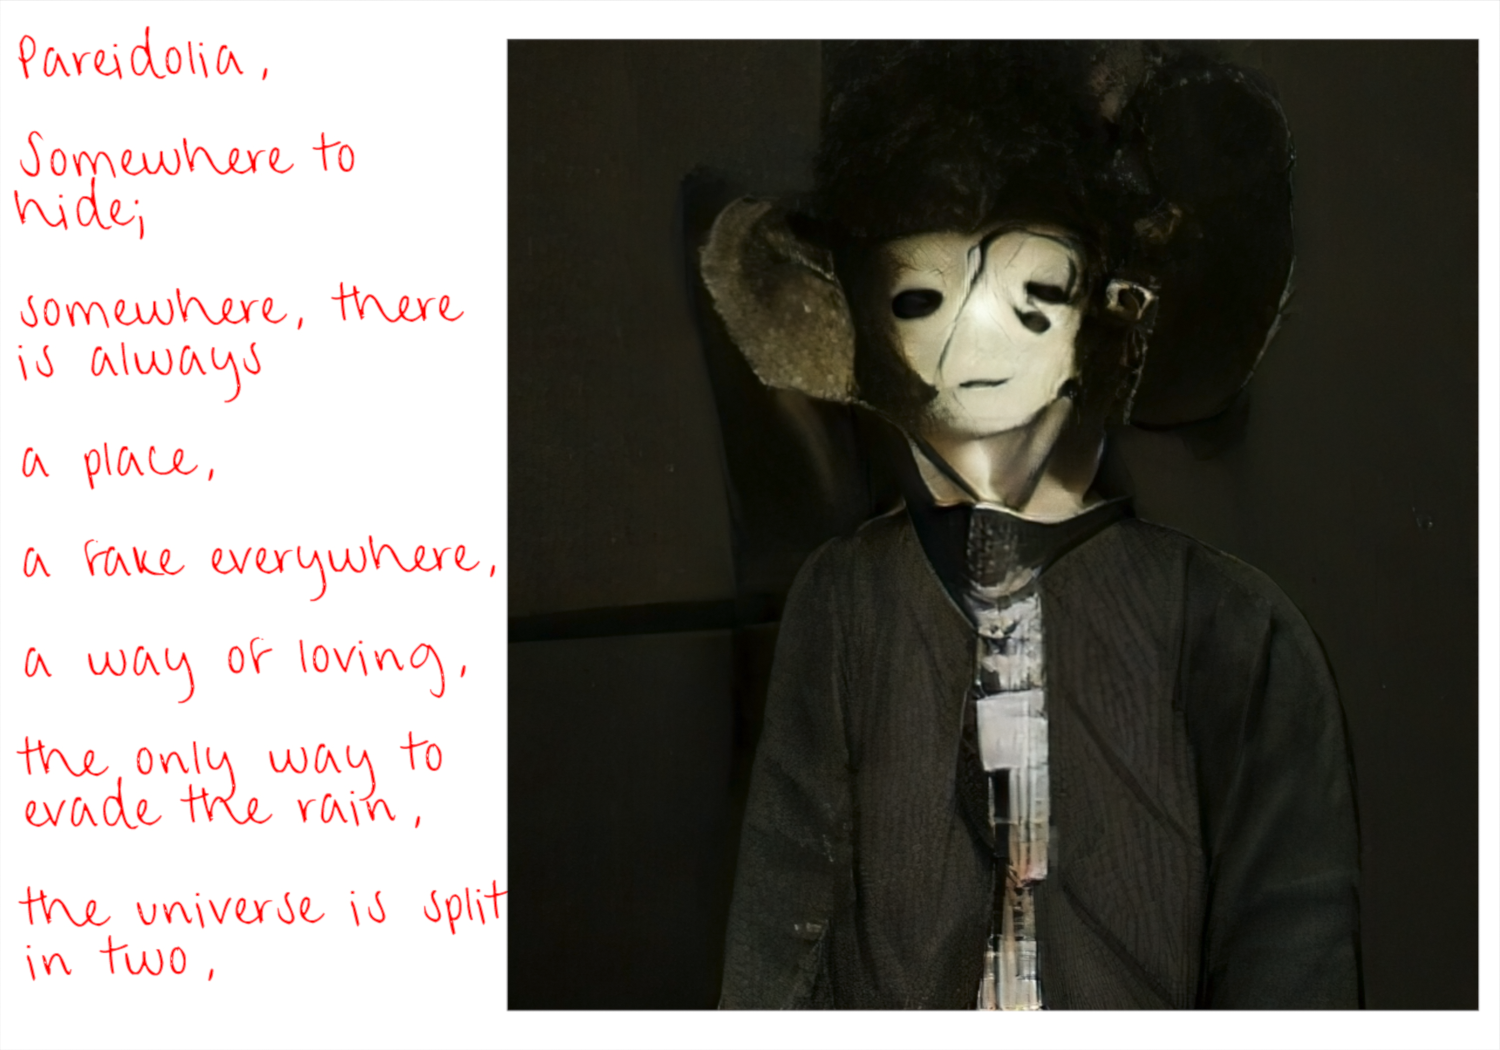 Pareidolia,
Somewhere to
hide;
somewhere, there
is always
a place,
a fake everywhere,
a way of loving,
the only way to
evade the rain,
the universe is split
in two,